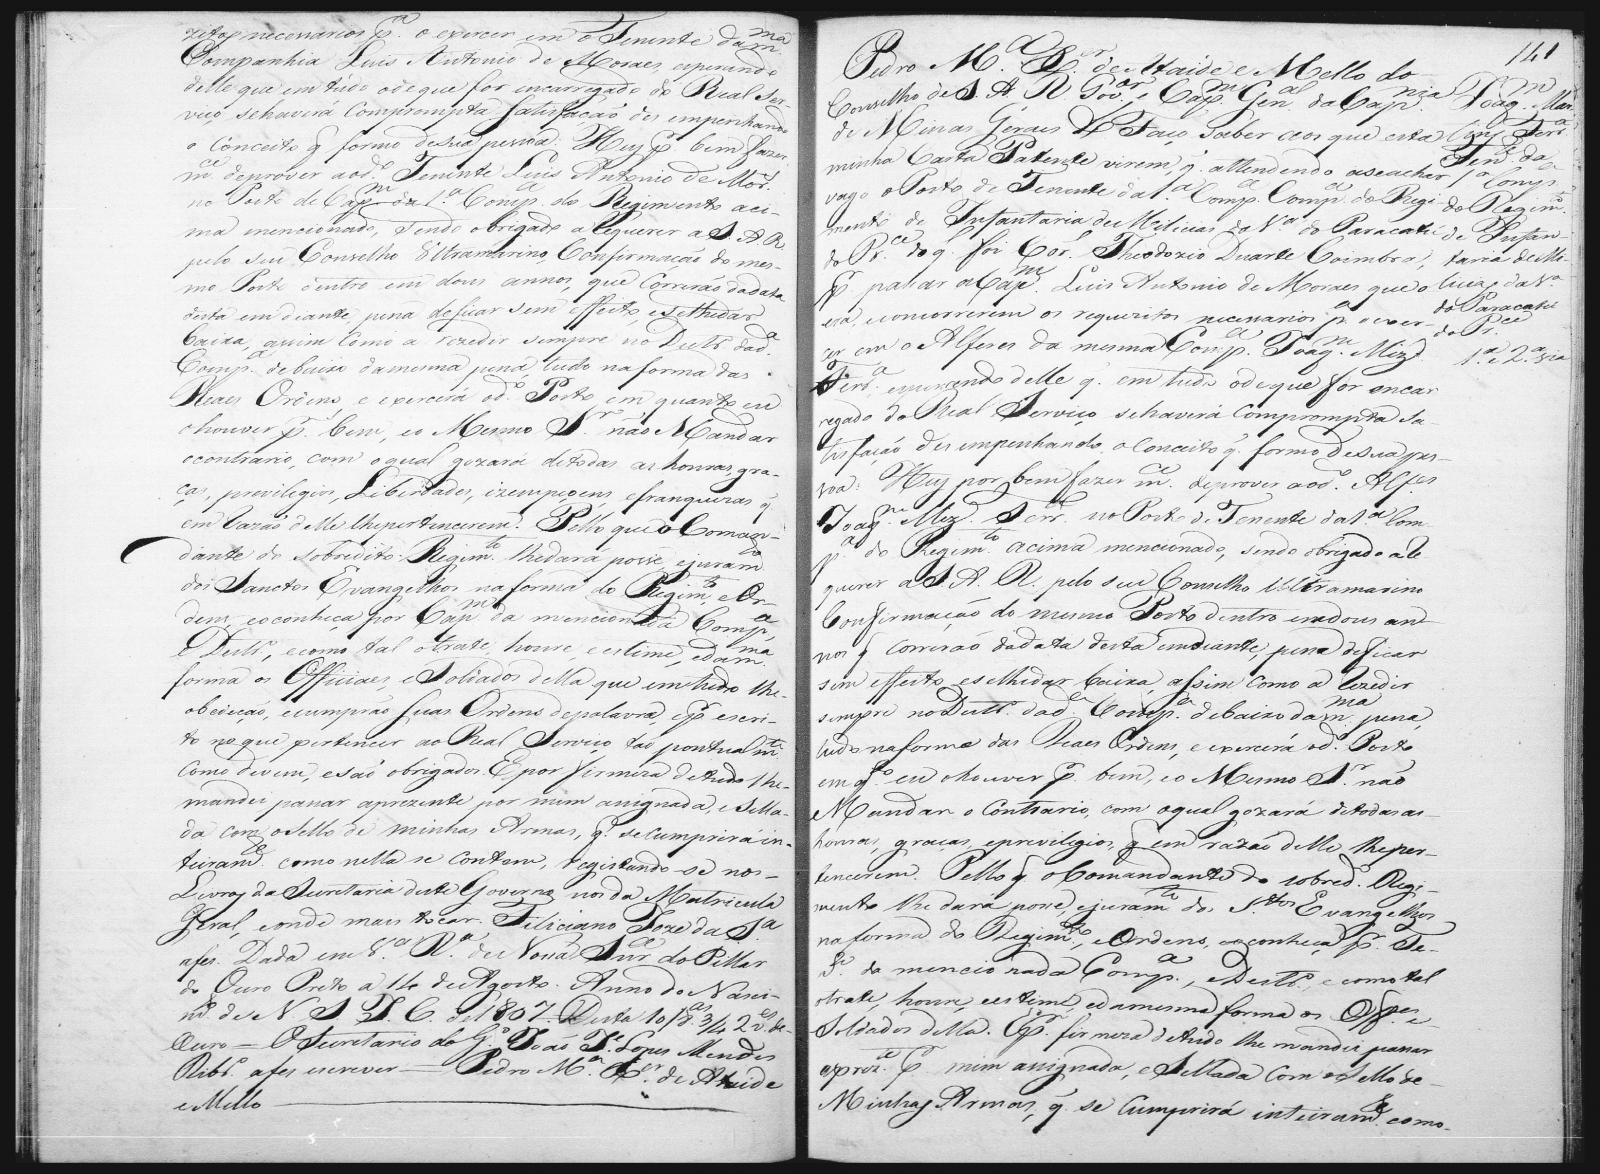 zitos necessarios pª. o exercer em o Tenente da mma
Companhia Luis Antonio de Moraes esperando
delle que em tudo o de que for encarregado do Real Ser-
viço se haverá com prompta satisfação desempenhando
o conceito q̃ formo de sua pessoa. Hey pr. bem fazer
mce. de prover ao do. Tenente Luis Antonio de Mors.
no Posto de Capm. da 1.ª Compª. do Regimento aci-
ma mencionado, sendo obrigado a Requerer a S. A. R.
pelo seu Conselho Ultramarino Confirmação do mes-
mo Posto dentro em dous annos, que Correrão da data
desta em diante, pena de ficar sem effeito, e se lhe dar
baixa, assim como a rezedir sempre no Destro. da da.
Compª. debaixo da mesma pena, tudo na forma das
Reaes Ordens, e exercerá o do. Posto em quanto eu
o houver pr. bem, e o Mesmo Sr. não Mandar
o contrario, com o qual gozará de todas as honras, gra-
ças, previlegios, Liberdades, izempçoens, e franquezas q̃
em razão delle lhe pertencerem. Pello que o Coman-
dante do sobredito Regimto. lhe dará posse, e juramto
dos Sanctos Evangelhos na forma do Regimto, e Or-
dem, e o conheça por Capm. da mencionada Compª,
e Destro, e como tal o trate, honre, e estime, e da mma
forma os Officiaes, e Soldados della que em tudo lhe
obedeção, e cumprão suas Ordens de palavra, e pr escri-
to no que pertencer ao Real Serviço tão pontualmte
como devem, e são obrigados. E por firmeza de tudo lhe
mandei passar a prezente por mim assignada, e Sella-
da com o Sello de minhas Armas, q̃. se cumprirá in-
teiramte. como nella se contem, registando-se nos
Livros da Secretaria deste Governo, nos da Matricula
Geral, e onde mais tocar. Feliciano Joze da Sª
a fes. Dada em Vª. Rª. de Nossa Snrª do Pillar
do Ouro Preto a 14 de Agosto. Anno do Nasci-
mto. de N S J. C. de 1807. Desta 10/8as 3/4 2 vs de
Ouro — O Secretario do Go. João Je. Lopes Mendes
Ribro. a fes escrever — Pedro Mª. Xer. de Ataide
e Mello
141
Pedro Mª. Xer. de Ataide e Mello do
Conselho de S. A. R. Govor, e Capm Genal da Capnia
de Minas Geraes &ª Faço saber aos que esta
minha Carta Patente virem, q̃. attendendo a se achar
vago o Posto de Tenente da 1.ª Compª. do Regi-
mento de Infantaria de Milicias da Vª do Paracatú
do Prce. do q̃. foi Cor. Theodozio Duarte Coimbra,
pr. passar a Capm. Luis Antonio de Moraes que o
era, e concorrerem os requezitos necessarios pª. o exer-
cer em o Alferes da mesma Compª. Joaqm. Miz
Ferrª. esperando delle q̃. em tudo o de que for encar
regado do Real Serviço, se haverá com prompta sa-
tisfação desempenhando, o conceito q̃. formo de sua pes-
soa: Hey por bem fazer mce. de prover ao do. Alfes
Joaqm. Miz Ferrª. no Posto de Tenente da 1.ª Com
pª do Regimto. acima mencionado, sendo obrigado a Re
querer a S. A. R. pelo seu Conselho Ultramarino
Confirmação do mesmo Posto dentro em dous an-
nos q̃ correrão da data desta em diante, pena de ficar
sem effeito, e se lhe dar baixa, assim como a rezedir
sempre no Destro. da da. Compª. debaixo da mma pena,
tudo na forma das Reaes Ordens, e exercerá o do. Posto
em qto. eu o houver pr. bem, e o Mesmo Sr. não
Mandar o Contrario, com o qual gozará de todas as
honras, graças, e previlegios, q̃ em razão delle lhe per-
tencerem. Pello q̃ o Comandante do sobredo. Regi-
mento lhe dará posse, e juramto dos Stos Evangelhos
na forma do Regimto., e Ordens, e o conheça pr. Te-
ne. da mencionada Compª., e Destro., e como tal
o trate, honre, e estime, e da mesma forma os Offes e
Soldados della. E pr. firmeza de tudo lhe mandei passar
a preze. pr. mim assignada, e Sellada com o Sello de
Minhas Armas, q̃. se cumprirá inteiramte. como
Joaqm Mar-
tins Ferrª
Tene. da
1.ª Compª
do Regimto.
de Infan-
taria de Mi-
licias da Vª
do Paracatú
do Prce
1.ª e 2.ª via